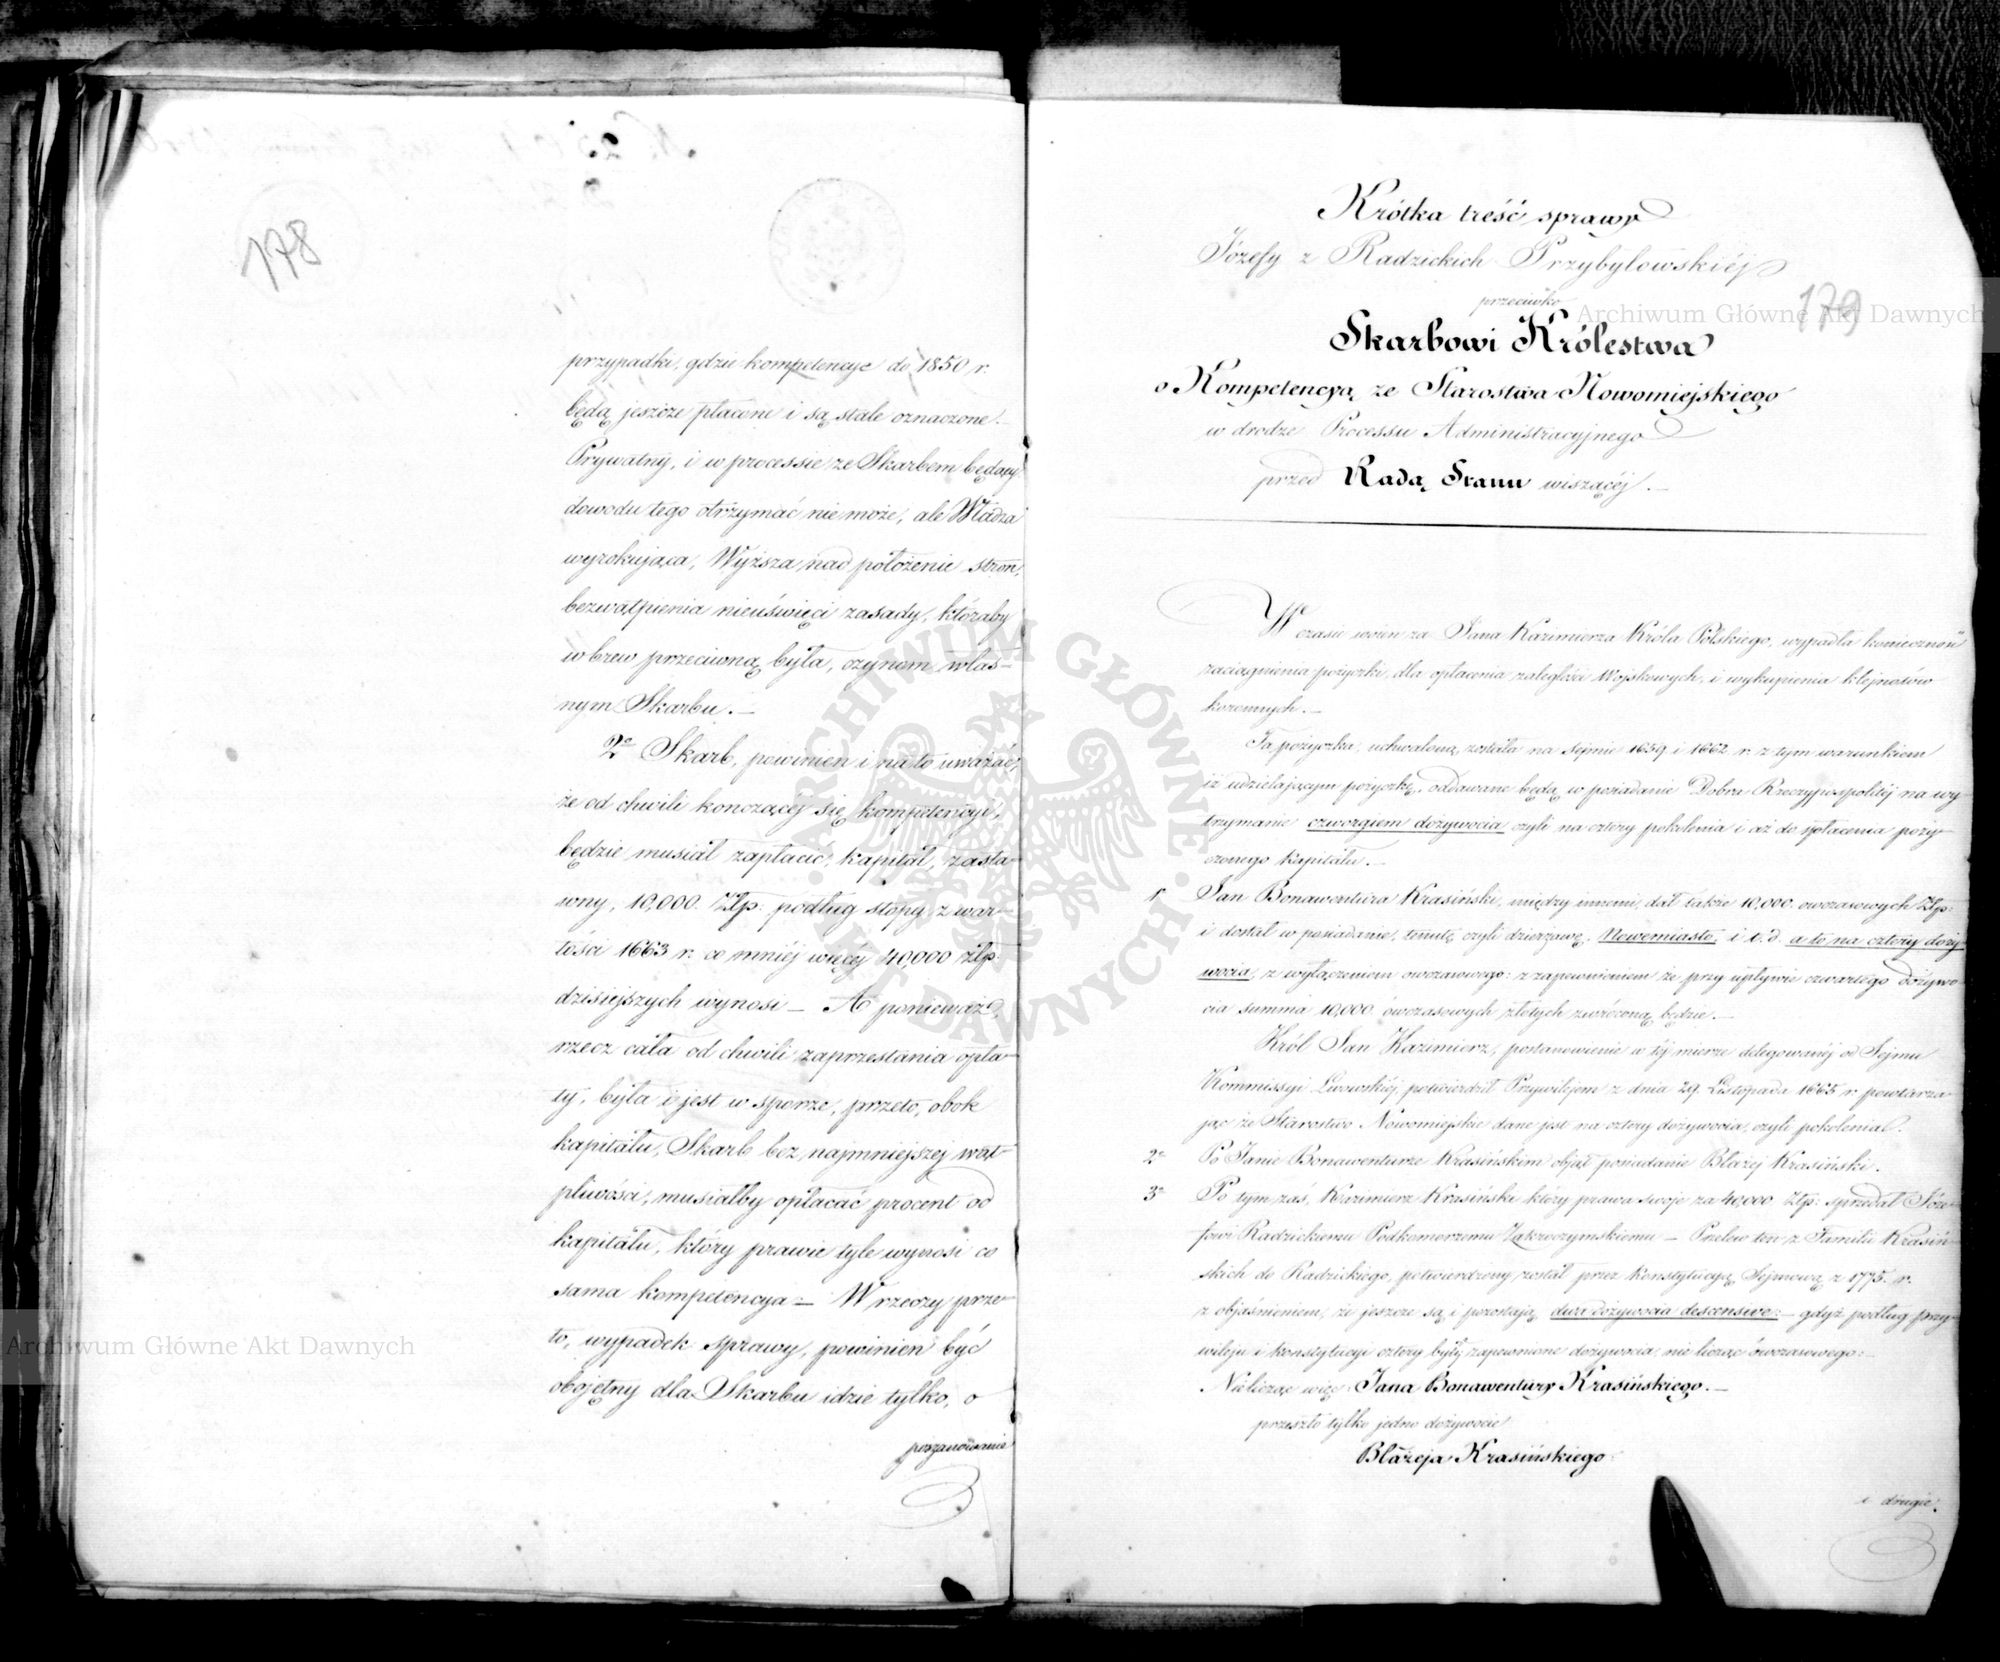 178
przypadki, gdzie kompetencye do 1850 r.
będą jeszcze płacone i są stale oznaczone.—
Prywatny, i w processie ze Skarbem będący,
dowodu tego otrzymać nie może, ale Władza
wyrokująca, Wyższa nad położenie stron,
bezwątpienia nieuświęci zasady, któraby
wbrew przeciwną była, czynom włas-
nym Skarbu.—
2º Skarb, powinien i na to uważać,
że od chwili kończącéj się kompetencyi,
będzie musiał zapłacić, kapitał, zasta-
wny, 10,000. Złp: podług stopy z war-
tości 1663 r. co mniéj więcéj 40,000 złp.
dzisiejszych wynosi — A ponieważ,
rzecz cała od chwili zaprzestania opła-
ty, była i jest w sporze, przeto, obok
kapitału, Skarb bez najmniejszej wąt-
pliwości, musiałby opłacać procent od
kapitału, który prawie tyle wynosi co
sama kompetencya — W rzeczy prze-
to, wypadek sprawy, powinien być
obojętny dla Skarbu idzie tylko, o
poszanowanie
Krótka treść sprawy
Józefy z Radzickich Przybyłowskiéj
przeciwko
179
Skarbowi Królestwa
o Kompetencyą ze Starostwa Nowomiejskiego
w drodze Processu Administracyjnego
przed Radą Stanu wiszącéj.—
W czasie woien za Jana Kazimierza Króla Polskiego, wypadła konieczność
zaciągnienia pożyczki, dla opłacenia zaległości Wojskowych, i wykupienia klejnotów
koronnych.—
Ta pożyczka, uchwaloną została na sejmie 1659 i 1662 r. z tym warunkiem
iż udzielającym pożyczkę, oddawane będą w posiadanie Dobra Rzeczypospolitéj na wy-
trzymanie czworgiem dożywocia czyli na cztery pokolenia i aż do spłacenia poży-
czonego kapitału.—
1º Jan Bonawentura Krasiński, między innemi, dał także 10,000. owczasowych Złp:
i dostał w posiadanie, tenutę czyli dzierżawę, Nowemiasto, i t. d. a to na cztery doży-
wocia, z wyłączeniem owczasowego: z zapewnieniem że przy upływie czwartego dożywo-
cia summa 10,000. ówczasowych złotych zwróconą będzie.—
Król Jan Kazimierz, postanowienie w téj mierze delegowanéj od Sejmu
Kommissyi Lwowskiéj, potwierdził Przywilejem z dnia 29. Listopada 1663 r. powtarza-
jąc że Starostwo Nowomiejskie dane jest na cztery dożywocia, czyli pokolenia.
2º Po Janie Bonawenturze Krasińskim objął posiadanie Błażej Krasiński.
3º Po tym zaś, Kazimierz Krasiński który prawa swoje za 40,000 Złp: sprzedał Józe-
fowi Radzickiemu Podkomorzemu Zakroczymskiemu — Przelew ten z Familii Krasiń-
skich do Radzickiego, potwierdzony został przez Konstytucyą Sejmową z 1775. r.
z objaśnieniem, że jeszcze są i pozostają, dwa dożywocia descensive:— gdyż podług przy-
wileju i konstytucyi cztery były zapewnione dożywocia, nie licząc ówczasowego:—
Nielicząc więc Jana Bonawentury Krasińskiego.—
przeszło tylko jedno dożywocie
Błażeja Krasińskiego
i drugie.
Archiwum Główne Akt Dawnych
Archiwum Główne Akt Dawnych
ARCHIWUM GŁÓWNE AKT DAWNYCH